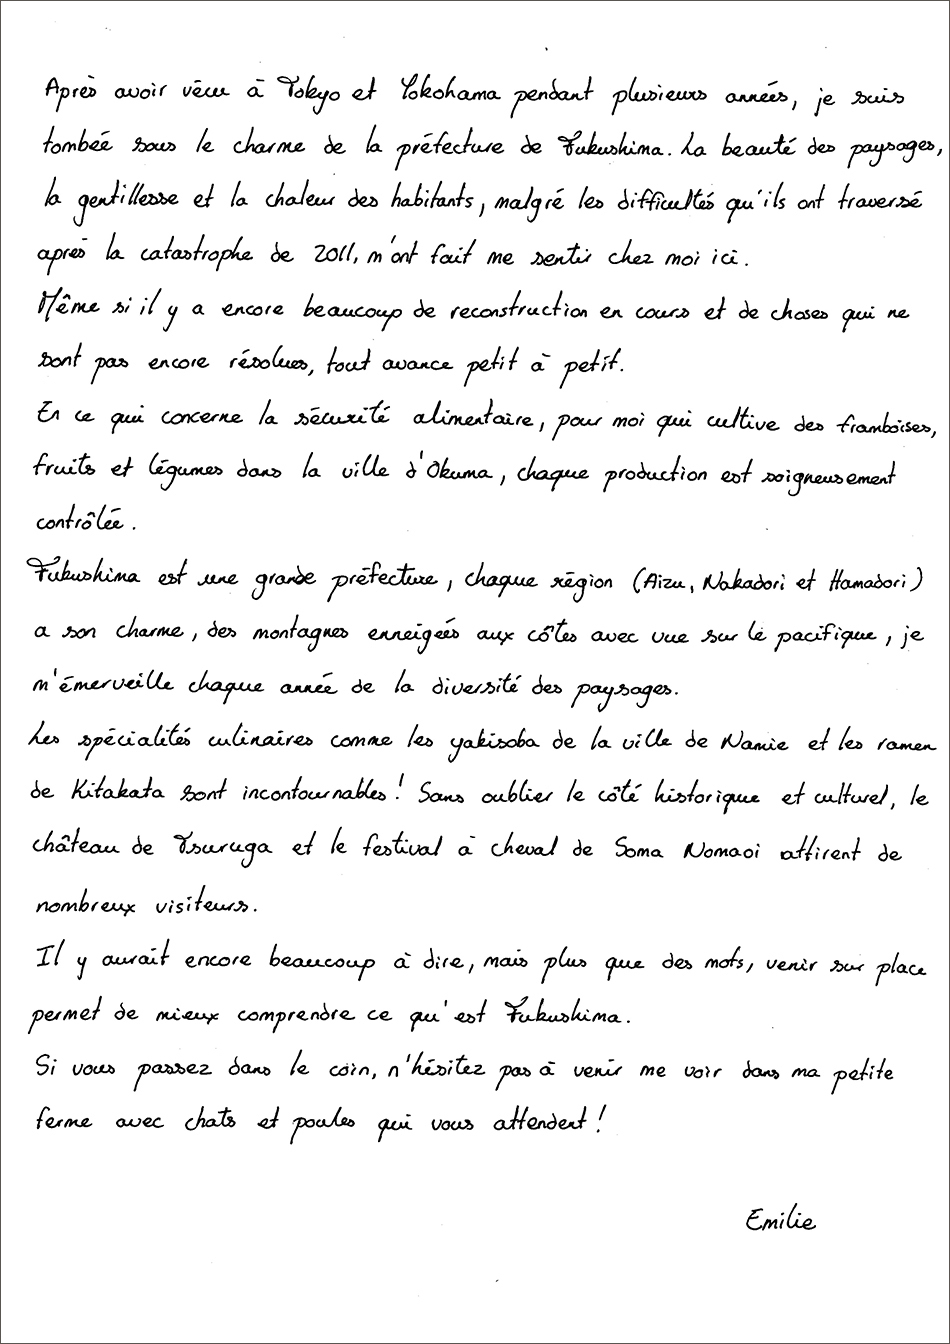 Après avoir vécu à Tokyo et Yokohama pendant plusieurs années, je suis
tombée sous le charme de la préfecture de Fukushima. La beauté des paysages,
la gentillesse et la chaleur des habitants, malgré les difficultés qu'ils ont traversé
après la catastrophe de 2011, m'ont fait me sentir chez moi ici.
Même si il y a encore beaucoup de reconstruction en cours et de choses qui ne
sont pas encore résolues, tout avance petit à petit.
En ce qui concerne la sécurité alimentaire, pour moi qui cultive des framboises,
fruits et légumes dans la ville d'Okuma, chaque production est soigneusement
contrôlée.
Fukushima est une grande préfecture, chaque région (Aizu, Nakadori et Hamadori)
a son charme, des montagnes enneigées aux côtes avec vue sur le pacifique, je
m'émerveille chaque année de la diversité des paysages.
Les spécialités culinaires comme les yakisoba de la ville de Namie et les ramen
de Kitakata sont incontournables! Sans oublier le côté historique et culturel, le
château de Tsuruga et le festival à cheval de Soma Nomaoi attirent de
nombreux visiteurs.
Il y aurait encore beaucoup à dire, mais plus que des mots, venir sur place
permet de mieux comprendre ce qu'est Fukushima.
Si vous passez dans le coin, n'hésitez pas à venir me voir dans ma petite
ferme avec chats et poules qui vous attendent!
Emilie